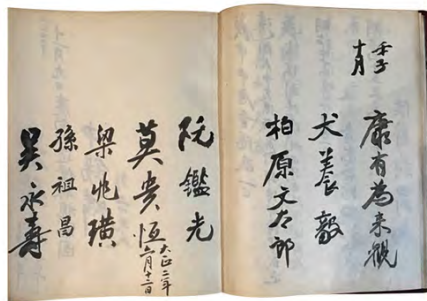 壬子
十月
康有為来観
犬養毅
柏原文太郎
阮鑑光
莫貴恒
大正二年
六月十二日
梁兆璜
孫祖昌
吳永壽